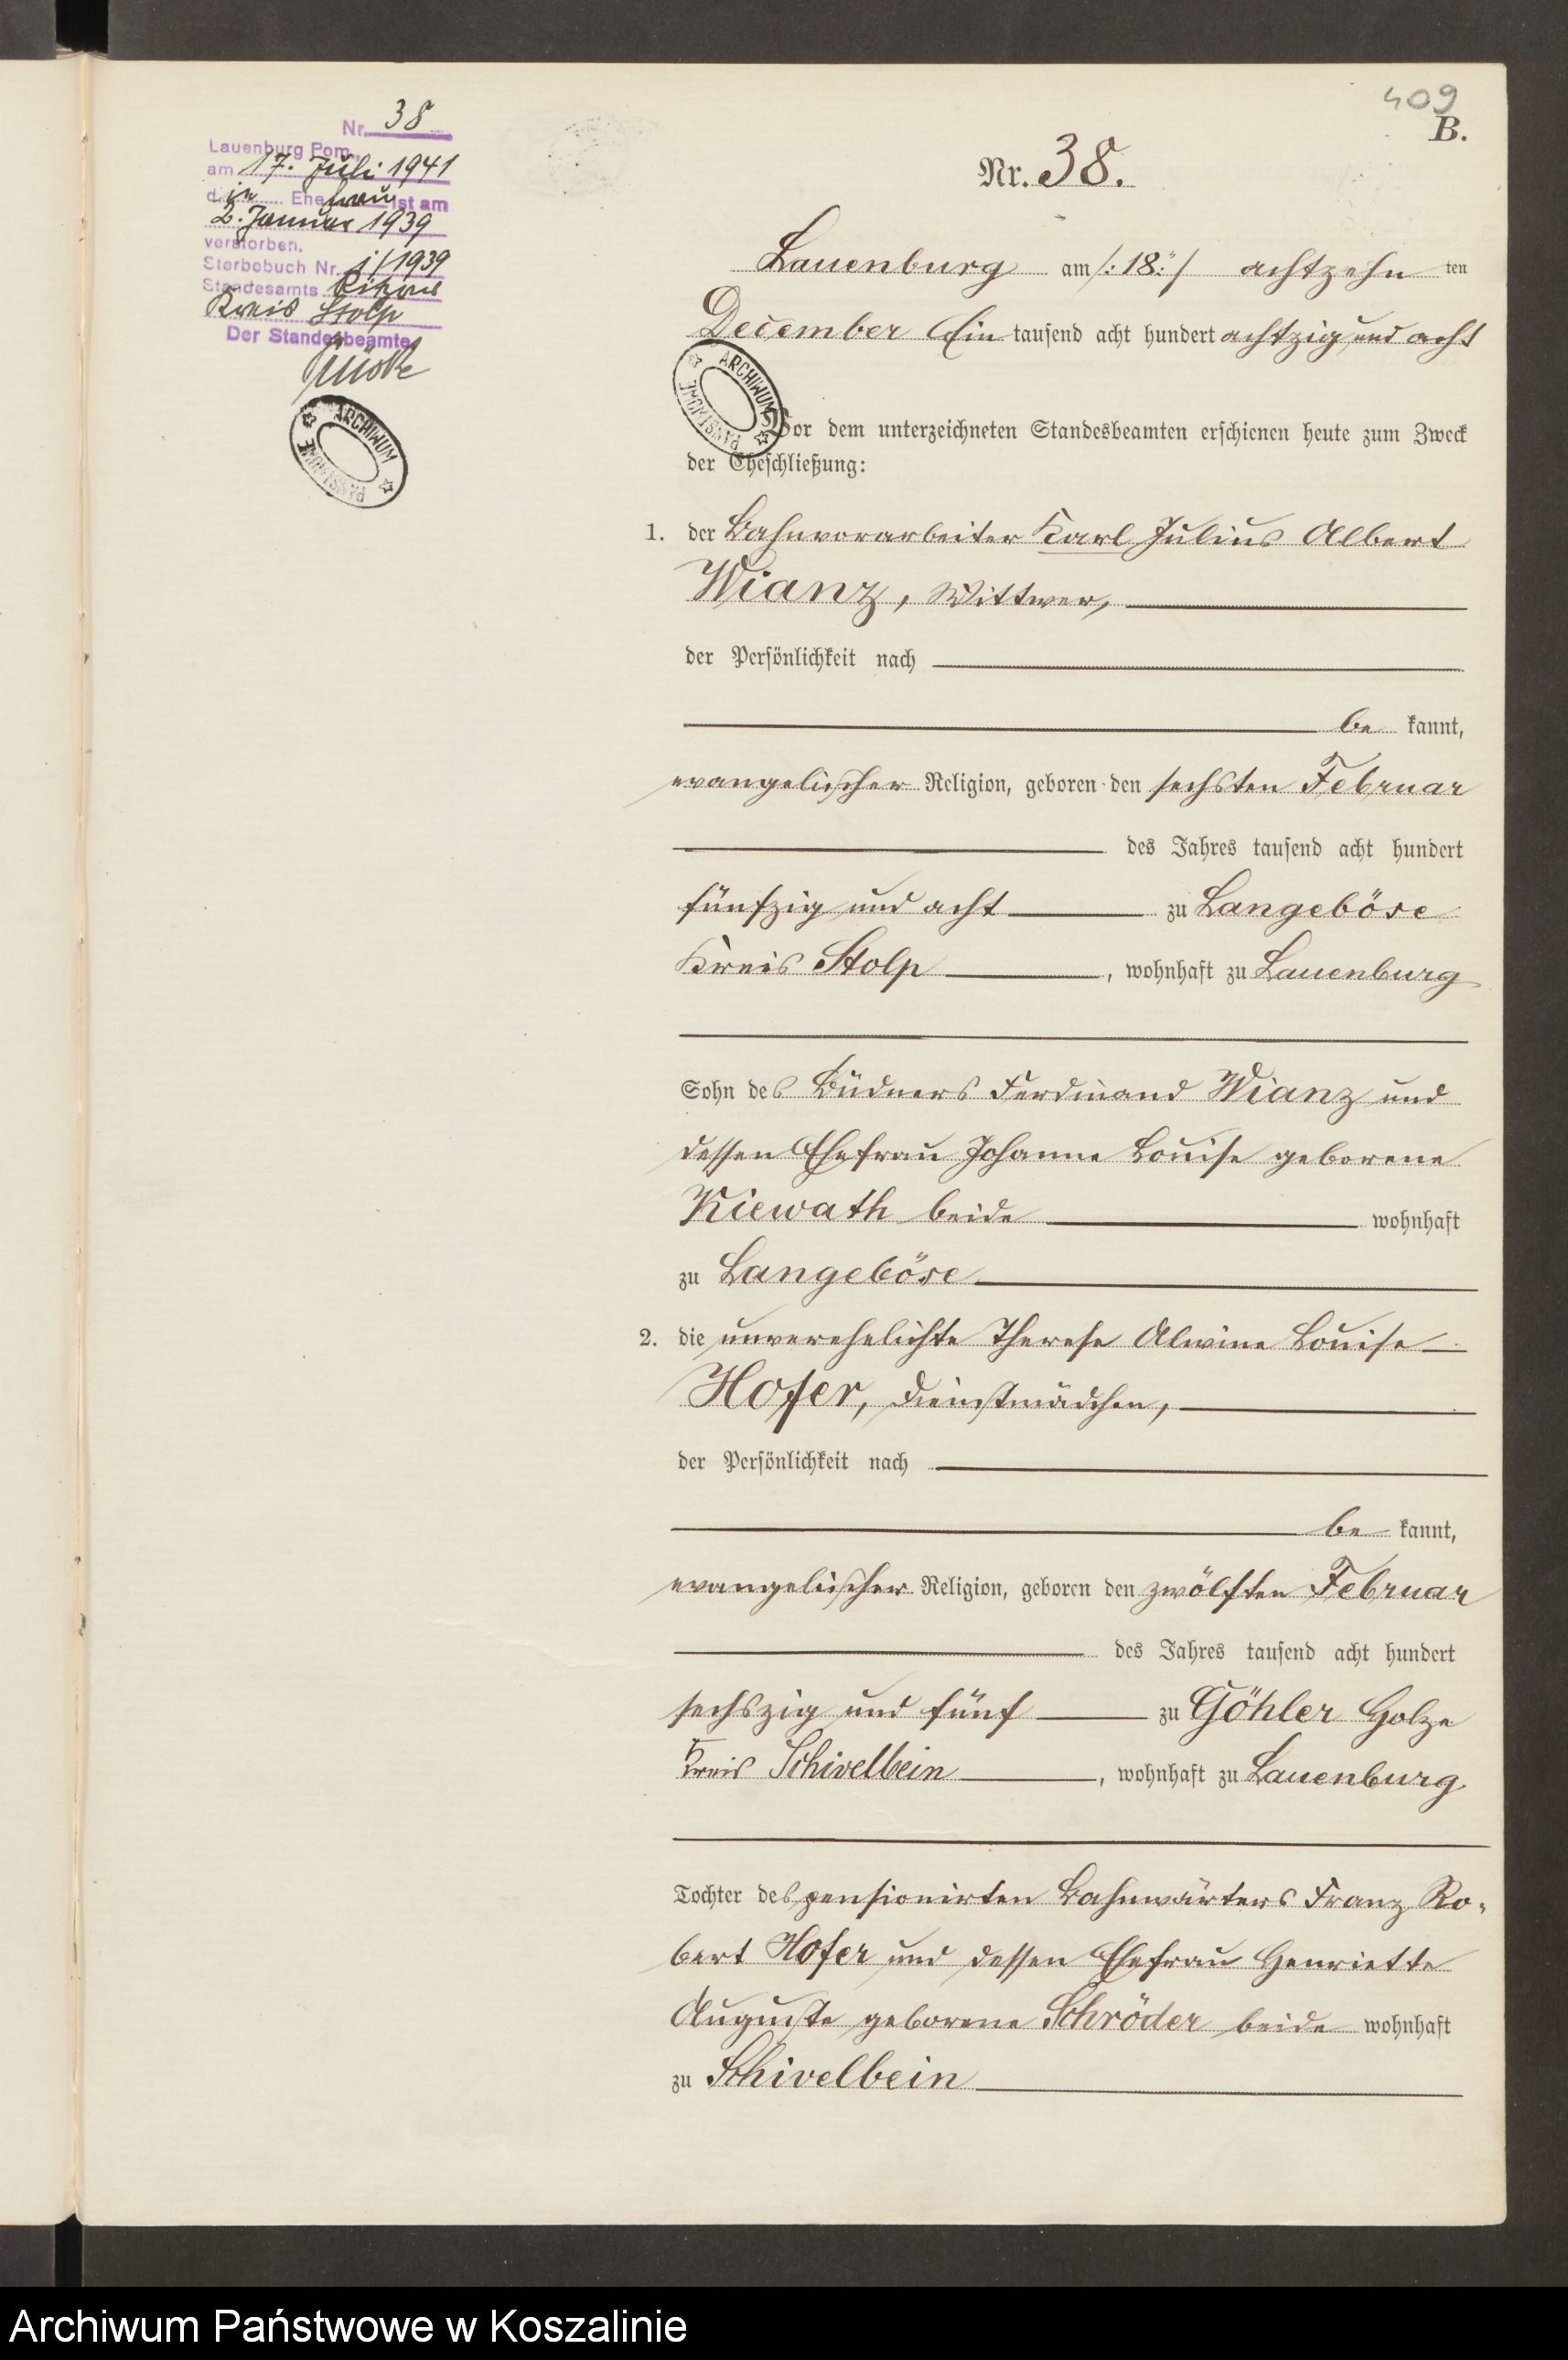 409
B.
Nr. 38
Lauenburg Pom.,
am 17. Juli 1941
die Ehefrau ist am
2. Januar 1939
verstorben.
Sterbebuch Nr. 1/1939
Standesamts
Kreis Stolp
Der Standesbeamte
ARCHIWUM PAŃSTWOWE
Nr. 38.
Lauenburg am /:18:/ achtzehn ten
December Ein tausend acht hundert achtzig und acht
ARCHIWUM PAŃSTWOWE
Vor dem unterzeichneten Standesbeamten erschienen heute zum Zweck
der Eheschließung:
1. der Bahnvorarbeiter Karl Julius Albert
Wianz, Wittwer,
der Persönlichkeit nach
be kannt,
evangelischer Religion, geboren den sechsten Februar
des Jahres tausend acht hundert
fünfzig und acht zu Langeböse
Kreis Stolp, wohnhaft zu Lauenburg
Sohn des Büdners Ferdinand Wianz und
dessen Ehefrau Johanne Louise geborene
Kiewath beide wohnhaft
zu Langeböse
2. die unverehelichte Therese Alwine Louise
Hofer, Dienstmädchen,
der Persönlichkeit nach
be kannt,
evangelischer Religion, geboren den zwölften Februar
des Jahres tausend acht hundert
sechszig und fünf zu Göhler Holze
Kreis Schivelbein, wohnhaft zu Lauenburg
Tochter des pensionirten Bahnwärters Franz Ro-
bert Hofer und dessen Ehefrau Henriette
Auguste geborene Schröder beide wohnhaft
zu Schivelbein
Archiwum Państwowe w Koszalinie